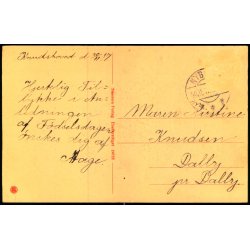 Knudshoved d.
Hjertelig Til-
lykke i An-
ledningen
af Fødselsdagen
ønskes dig af
Aage
Maren Kirstine
Knudsen
Dalby
pr Dalby